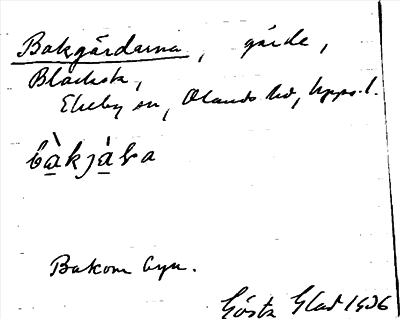 Bakgårdarna, gärde,
Blacksta,
Ekeby sn, Olands hd, Upps. l.
Bakom byn.
Gösta Glad 1936